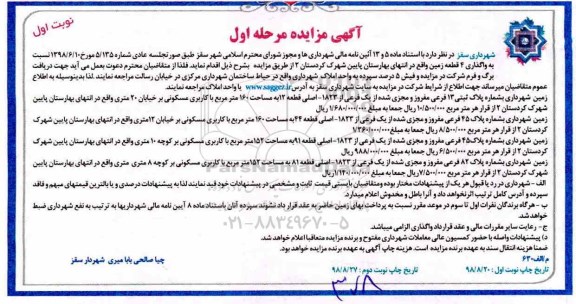 آگهی مزایده مرحله اول
نوبت اول
شهرداری سقز در نظر دارد با استناد ماده ۵ و ۱۳ آئین نامه مالی شهرداری ها و مجوز شورای محترم اسلامی شهر سقز طبق صورتجلسه عادی شماره ۵/۱۳۵ مورخ ۱۳۹۸/۶/۱۰ نسبت
به واگذاری ۴ قطعه زمین واقع در انتهای بهارستان پایین شهرک کردستان ۲ از طریق مزایده بشرح ذیل اقدام نماید. فلذا از متقاضیان محترم دعوت بعمل می آید جهت دریافت
برگ و فرم شرکت در مزایده و فیش ۵ درصد سپرده به واحد املاک شهرداری واقع در حیاط ساختمان شهرداری مرکزی در خیابان رسالت مراجعه نمایند. لذا بدینوسیله به اطلاع
عموم متقاضیان میرساند جهت اطلاع از شرایط شرکت در مزایده به سایت شهرداری سقز به آدرس www.saggez.ir یا واحد املاک مراجعه نمایند.
زمین شهرداری بشماره پلاک ثبتی ۱۳ فرعی مفروز و مجزی شده از یک فرعی از ۱۸۲۳- اصلی قطعه ۱۲ به مساحت ۱۶۰ متر مربع با کاربری مسکونی بر خیابان ۲۰ متری واقع در انتهای بهارستان پایین
شهرک کردستان ۲ از قرار هر متر مربع ۱۰/۵۰۰/۰۰۰ ریال جمعا به مبلغ ۱/۶۸۰/۰۰۰/۰۰۰ ریال
زمین شهرداری بشماره پلاک ۴۵ فرعی مفروز و مجزی شده از یک فرعی از ۱۸۲۳- اصلی قطعه ۴۴ به مساحت ۱۶۰ متر مربع با کاربری مسکونی بر خیابان ۱۲ متری واقع در انتهای بهارستان پایین شهرک
کردستان ۲ از قرار هر متر مربع ۸/۵۰۰/۰۰۰ ریال جمعا به مبلغ ۱/۳۶۰/۰۰۰/۰۰۰
زمین شهرداری بشماره پلاک فرعی مفروز و مجزی شده از یک فرعی از ۱۸۲۳- اصلی قطعه ۹۱ به مساحت ۱۵۲ متر مربع با کاربری مسکونی بر کوچه ۱۰ متری واقع در انتهای بهارستان پایین شهرک
کردستان ۲ از قرار هر متر مربع ۶/۵۰۰/۰۰۰ ریال جمعا به مبلغ ۹۸۸/۰۰۰/۰۰۰ ریال
زمین شهرداری بشماره پلاک ۸۲ فرعی مفروز و مجزی شده از یک فرعی از ۱۸۲۳- اصلی قطعه ۸۱ به مساحت ۱۵۲ متر مربع با کاربری مسکونی بر کوچه ۸ متری واقع در انتهای بهارستان پایین
شهرک کردستان ۲ از قرار هر متر مربع ۷/۵۰۰/۰۰۰ ریال جمعا به مبلغ ۱/۱۴۰/۰۰۰/۰۰۰ ریال
الف - شهرداری در رد یا قبول هر یک از پیشنهادات مختار بوده و متقاضیان بایستی قیمت ثابت و مشخصی در پیشنهادات خود قید نمایند لذا به پیشنهادات درصدی و یا بالاترین قیمتهای مبهم و فاقد
سپرده و آدرس کامل ترتیب اثر نخواهد داد و آنرا باطل و مخدوش اعلام میدارد.
ب - هرگاه برندگان نفرات اول تا سوم در موعد مقرر نسبت به پرداختی بهای زمین حاضر به عقد قرار داد نشوند سپرده آنان باستناد ماده ۸ آیین نامه مالی شهرداریها به ترتیب به نفع شهرداری ضبط
خواهد شد.
ج - رعایت سایر مقررات مالی و عقد قرارداد واگذاری الزامی میباشد.
د) پیشنهادات واصله با حضور کمسیون عالی معاملات شهرداری مفتوح و برنده مزایده متعاقبا اعلام خواهد شد.
ضمنا هزینه انتقال سند به عهده برنده مزایده است. هزینه چاپ آگهی به عهده برنده مزایده خواهد بود.
م/الف ۶۳۰
تاریخ چاپ نوبت اول : ۹۸/۸/۲۰ تاریخ چاپ نوبت دوم : ۹۸/۸/۲۷
چیا صالحی بابا میری شهردار سقز
ParsNamadData
۰۲۱-۸۸۳۴۹۶۷۰-۵